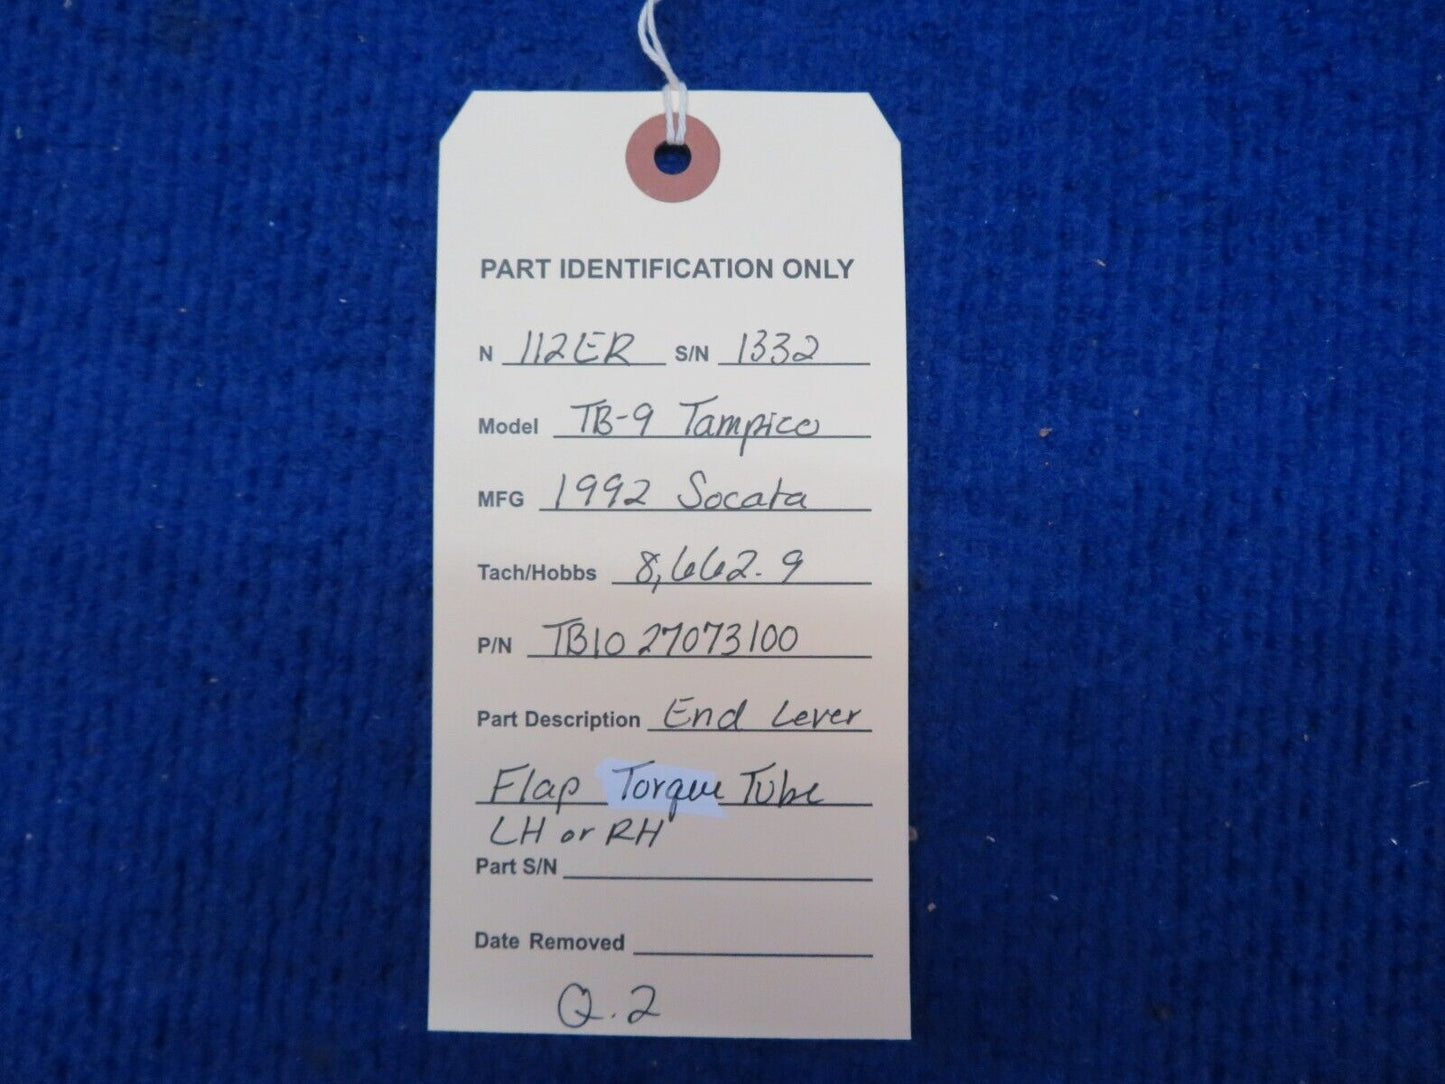 PART IDENTIFICATION ONLY
N 112ER S/N 1332
Model TB-9 Tampico
MFG 1992 Socata
Tach/Hobbs 8,662.9
P/N TB10 27073100
Part Description End Lever
Flap Torque Tube
LH or RH
Part S/N
Date Removed
Q.2